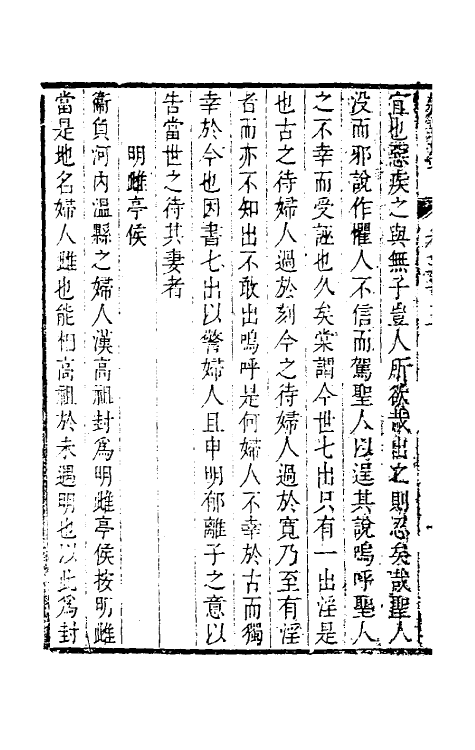 宜也惡疾之與無子豈人所欲哉出之則忍矣哉聖人
没而邪說作懼人不信而駕聖人以逞其說嗚呼聖人
之不幸而受誣也久矣棠謂今世七出只有一出淫是
也古之待婦人過於刻今之待婦人過於寛乃至有淫
者而亦不知出不敢出嗚呼是何婦人不幸於古而獨
幸於今也因書七出以警婦人且申明郁離子之意以
告當世之待其妻者
明雌亭侯
衛負河内温縣之婦人漢高祖封爲明雌亭侯按明雌
當是地名婦人雌也能相高祖於未遇明也以此爲封